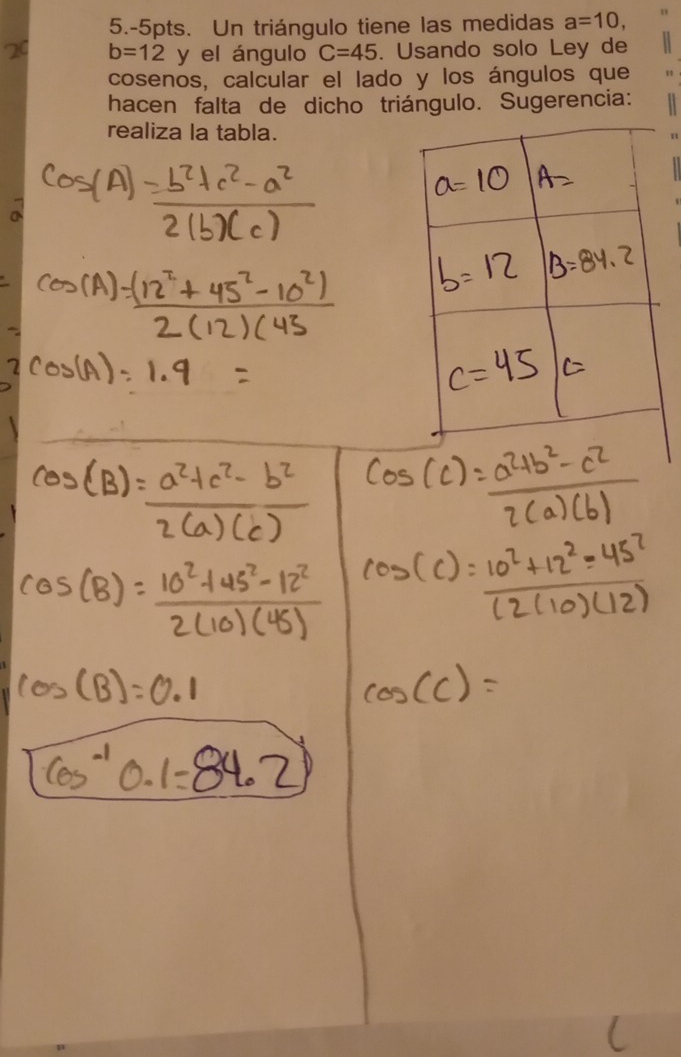 5.-5pts. Un triángulo tiene las medidas a=10,
b=12 y el ángulo C=45. Usando solo Ley de
cosenos, calcular el lado y los ángulos que
hacen falta de dicho triángulo. Sugerencia:
realiza la tabla.
a=10 A=
b=12 B=84.2
c=45 C=
cos(A)=b²+c²-a²
2(b)(c)
cos(A)=(12²+45²-10²)
2(12)(45
cos(A)=1.9 =
cos(B)=a²+c²-b²
2(a)(c)
cos(B)=10²+45²-12²
2(10)(45)
cos(B)=0.1
cos⁻¹0.1=84.2
cos(C)=a²+b²-c²
2(a)(b)
cos(C)=10²+12²-45²
(2(10)(12)
cos(C)=